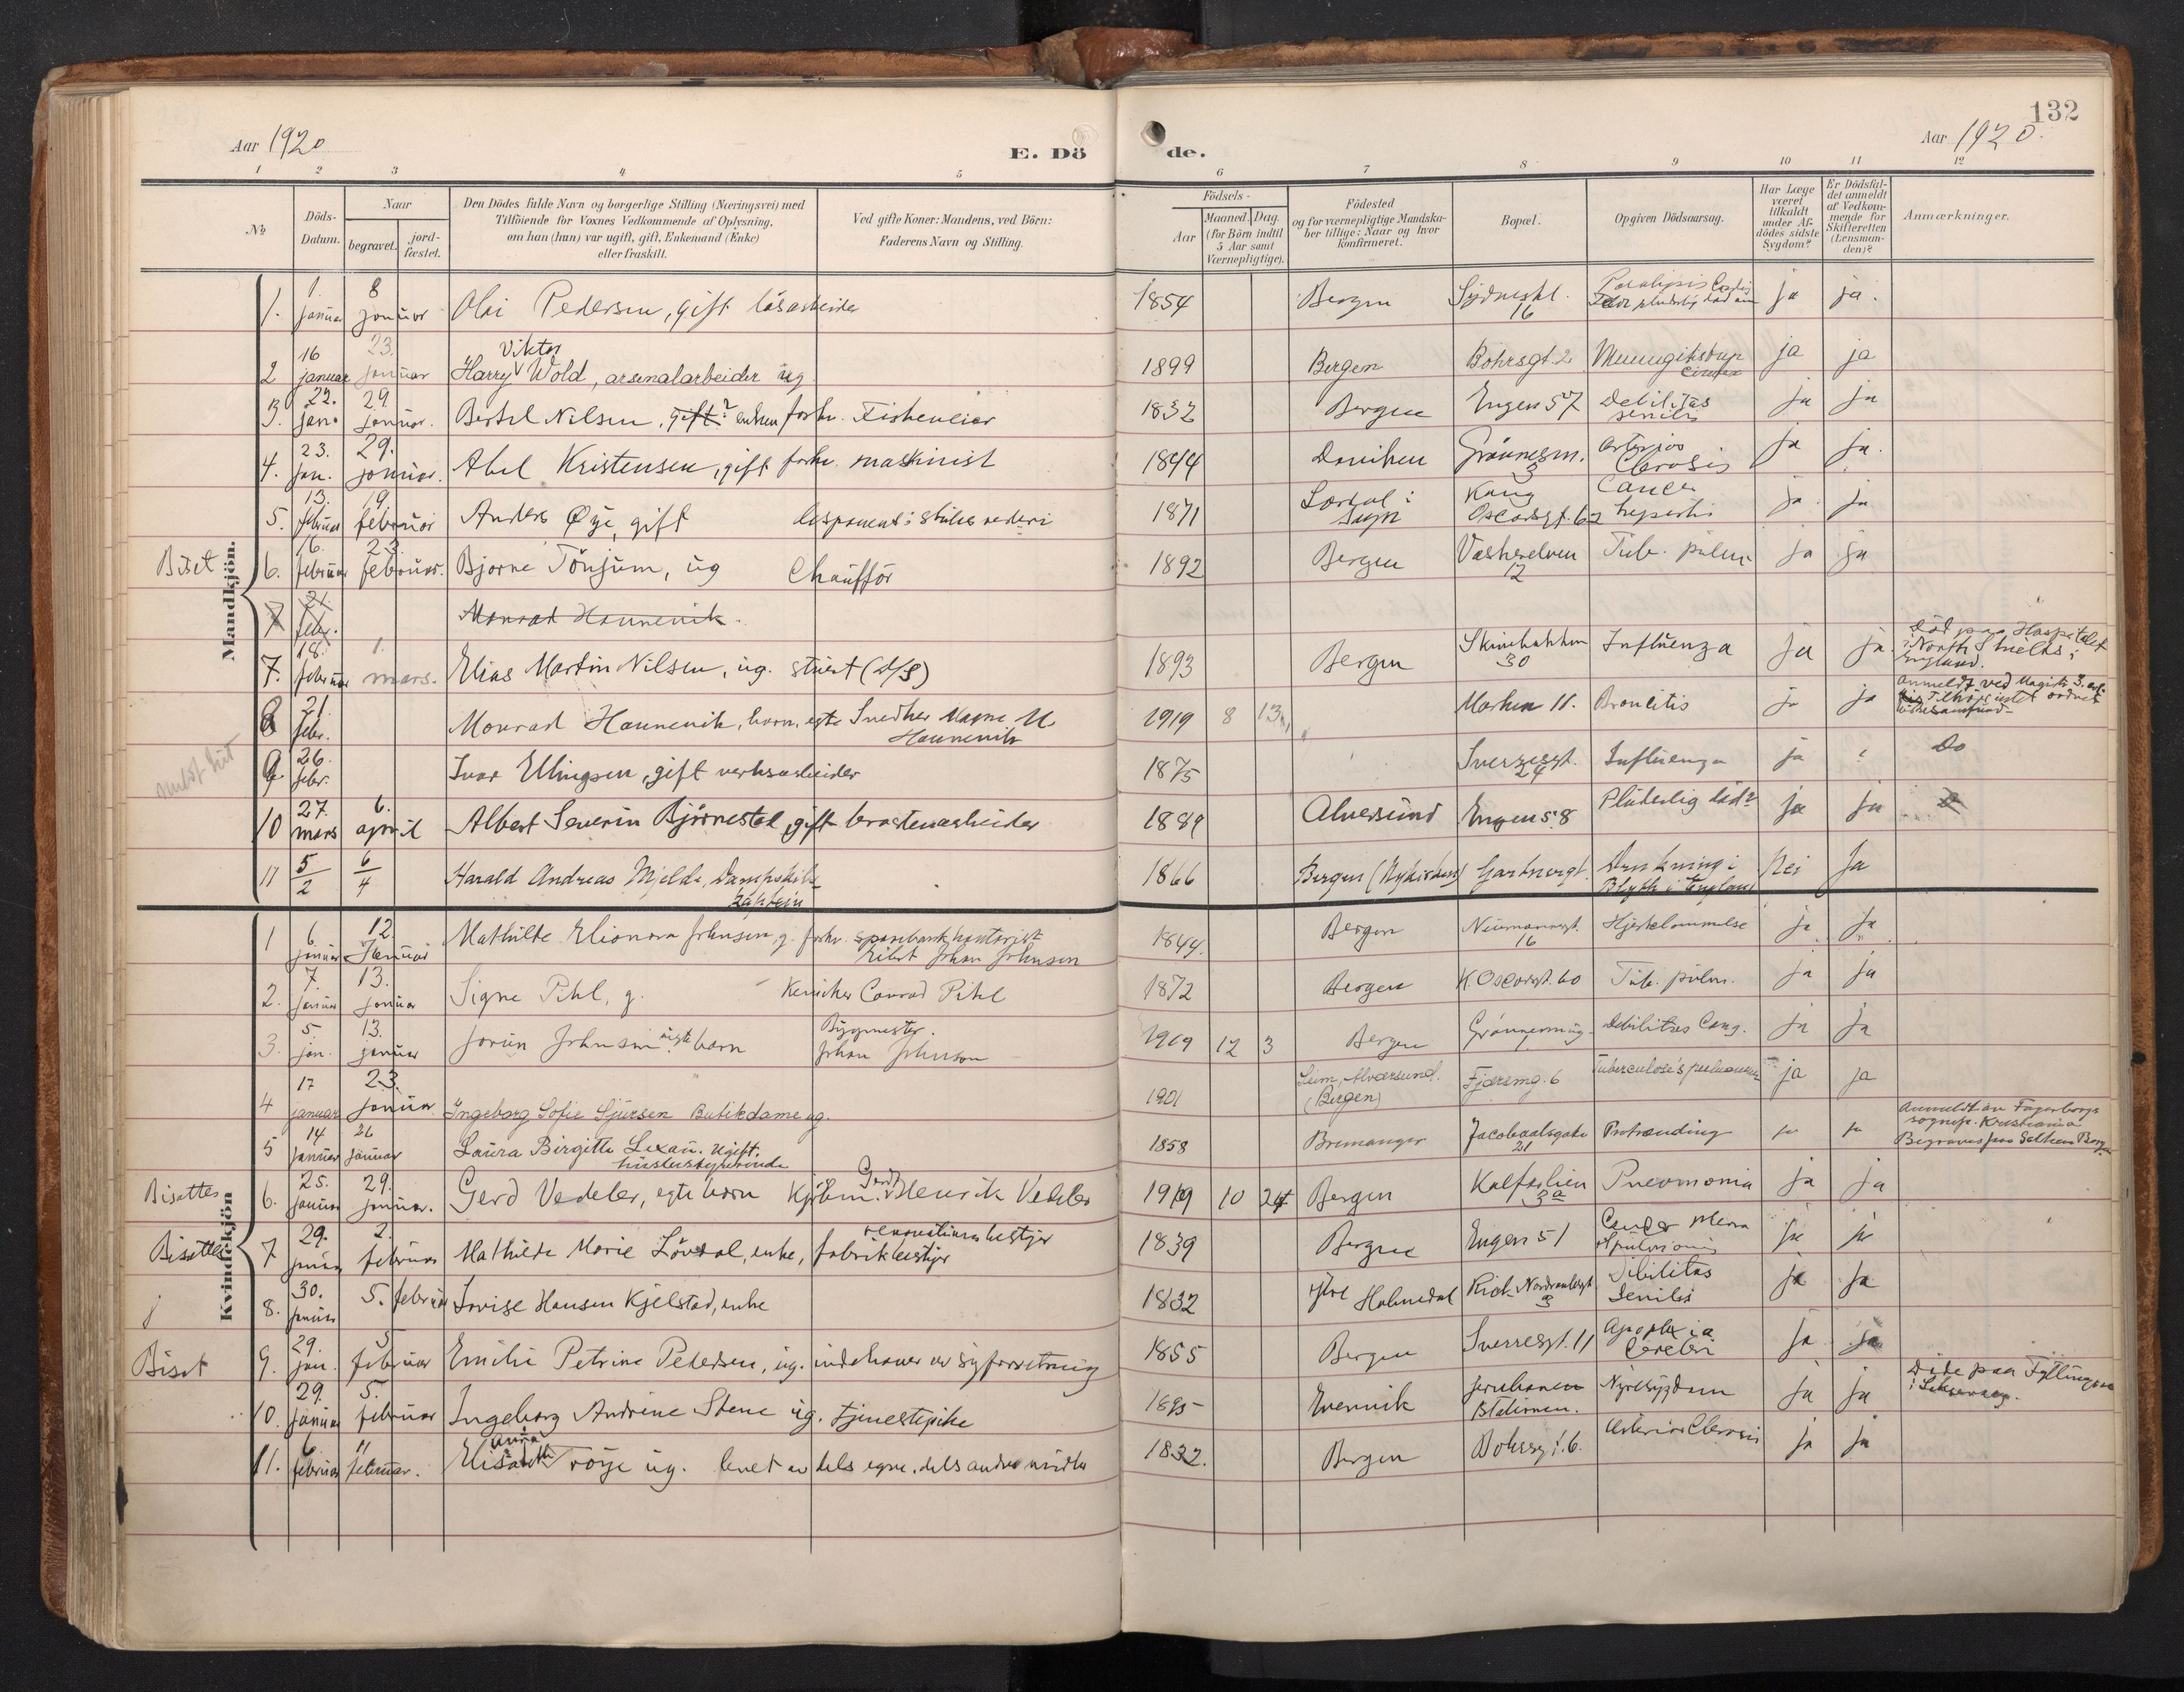 132
Aar 1920
E. Dö
de.
Aar 1920.
1 2 3 4 5 6 7 8 9 10 11 12
No
Döds-Datum.
Naar
begravet.
jord-fæstet.
Den Dödes fulde Navn og borgerlige Stilling (Næringsvei) med
Tilföiende for Voxnes Vedkommende af Oplysning,
om han (hun) var ugift, gift, Enkemand (Enke)
eller fraskilt.
Ved gifte Koner: Mandens, ved Börn:
Faderens Navn og Stilling.
Födsels-
Aar
Maaned. Dag.
(for Börn indtil
5 Aar samt
Værnepligtige).
Födested
og for værnepligtige Mandska-
ber tillige: Naar og hvor
konfirmeret.
Bopæl.
Opgiven Dödsaarsag.
Har Læge
været
tilkaldt
under Af-
dödes sidste
Sygdom?
Er Dödsfal-
det anmeldt
af Vedkom-
mende for
Skifteretten
(Lensman-
den)?
Anmærkninger.
Mandkjön.
1. 1. januar 8 januar Olai Pedersen, gift lösarbeider 1854 Bergen Sydneskl. 16 ja ja.
2 16 januar 23. januar Harry Viktor Wold, arsenalarbeider ug. 1899 Bergen Bohrsgt. 2 ja ja
3. 22. jan. 29. januar. Bertel Nilsen, gift? enkem forhv. Fiskeneier 1832 Bergen Engen 57 Debilitas senilis ja ja
4. 23. jan. 29. januar. Abel Kristensen, gift forhv. maskinist 1844 ja ja.
5. 13. februar 19. februar Anders Øye, gift disponent i Stules rederi 1871 Lærdal i Sogn Kong Oscarsgt. 62 Cancer hepatis ja. ja
Biset 6. 16. februar 23. februar. Bjarne Tönjum, ug Chaufför 1892 Bergen Vaskerelven 12 Tub. pulm. ja ja
7 21 febr. Monrad Hannevik.
7. 18. februar 1. mars. Elias Martin Nilsen, ug. stuert (D/S) 1893 Bergen 30 Influenza ja ja. Död paa Hospitalet i North Shields i England.
8 21. febr. Monrad Hannevik, barn, egte Snedker Magne M. Hannevik 1919 8 13 Marken 11. Broncitis ja ja anmeldt ved Magistr.
9 26. febr. Ivar Ellingsen, gift verksarbeider 1875 Sverresgt. 24 Influenza ja Do
10 27. mars 6. april Albert Severin Björnestad, gift 1889 Alversund Engen 58 Pludselig död? ja ja
11 5/2 6/4 Harald Andreas Mjelde, Dampskibs-kaptein 1866 Bergen (Nykirken) Gartnergt. Drukning i Blyth i England Nei Ja
Kvindekjön
1 6. januar 12. Januar Mathilde Elionora Johnsen, g. forhv. sparebankkontorist Johan Johnsen 1844. Bergen Neumannsgt. 16 Hjertelammelse ja ja
2. 7. januar 13. januar Signe Pihl, g. Kemiker Conrad Pihl 1872 Bergen K. Oscarsgt. 60 Tub. pulm. ja ja
3. 5. jan. 13. januar Jorun Johnsen egte barn Bygmester. Johan Johnson 1919 12 3 Bergen Debilitas Cong. ja ja
4 17 januar 23. januar Ingeborg Sofie Sjursen Butikdame ug. 1901 Seim, Alversund. (Bergen) Fjøsmg. 6 Tuberculosis pulmonum ja ja
5 14 januar 26 januar Laura Birgitte Lexau. Ugift. husbestyrerinde 1858 Bremanger Jacobaalsgate 21 ja ja Anmeldt av Fagerborgs sognep. Kristiania
Bisættes 6. 25. januar 29. januar. Gerd Vedeler, egte barn Kjöbm. Gerdt Henrik Vedeler 1919 10 24 Bergen Kalfarlien 3a Pneomonia ja ja
Bisættes 7 29. januar 2. februar Mathilde Marie Lövdal, enke, fabrikbestyr 1839 Bergen Engen 51 ja ja
8. 30. januar 5. februar Lovise Hansen Kjelstad, enke 1832 Ytre Holmedal Rich. Nordraaksgt. 3 Debilitas Senilis ja ja
Biset 9. 29. jan. 5 februar Emilie Petrine Pedersen, ug. indehaver av syforretning 1855 Bergen Sverresgt. 11 Apoplexia Cerebri ja ja
10. 29. januar 5. februar Ingeborg Andrine Stene ug. tjenestepike 1895 Evenvik Jernbanen Stationen. Nyresygdom ja ja Döde paa
11. 6 februar 11 februar. Elisabeth Anna ug. levet av dels egne, dels andres midler 1832. Bergen Bohrsgt. 6. ja ja